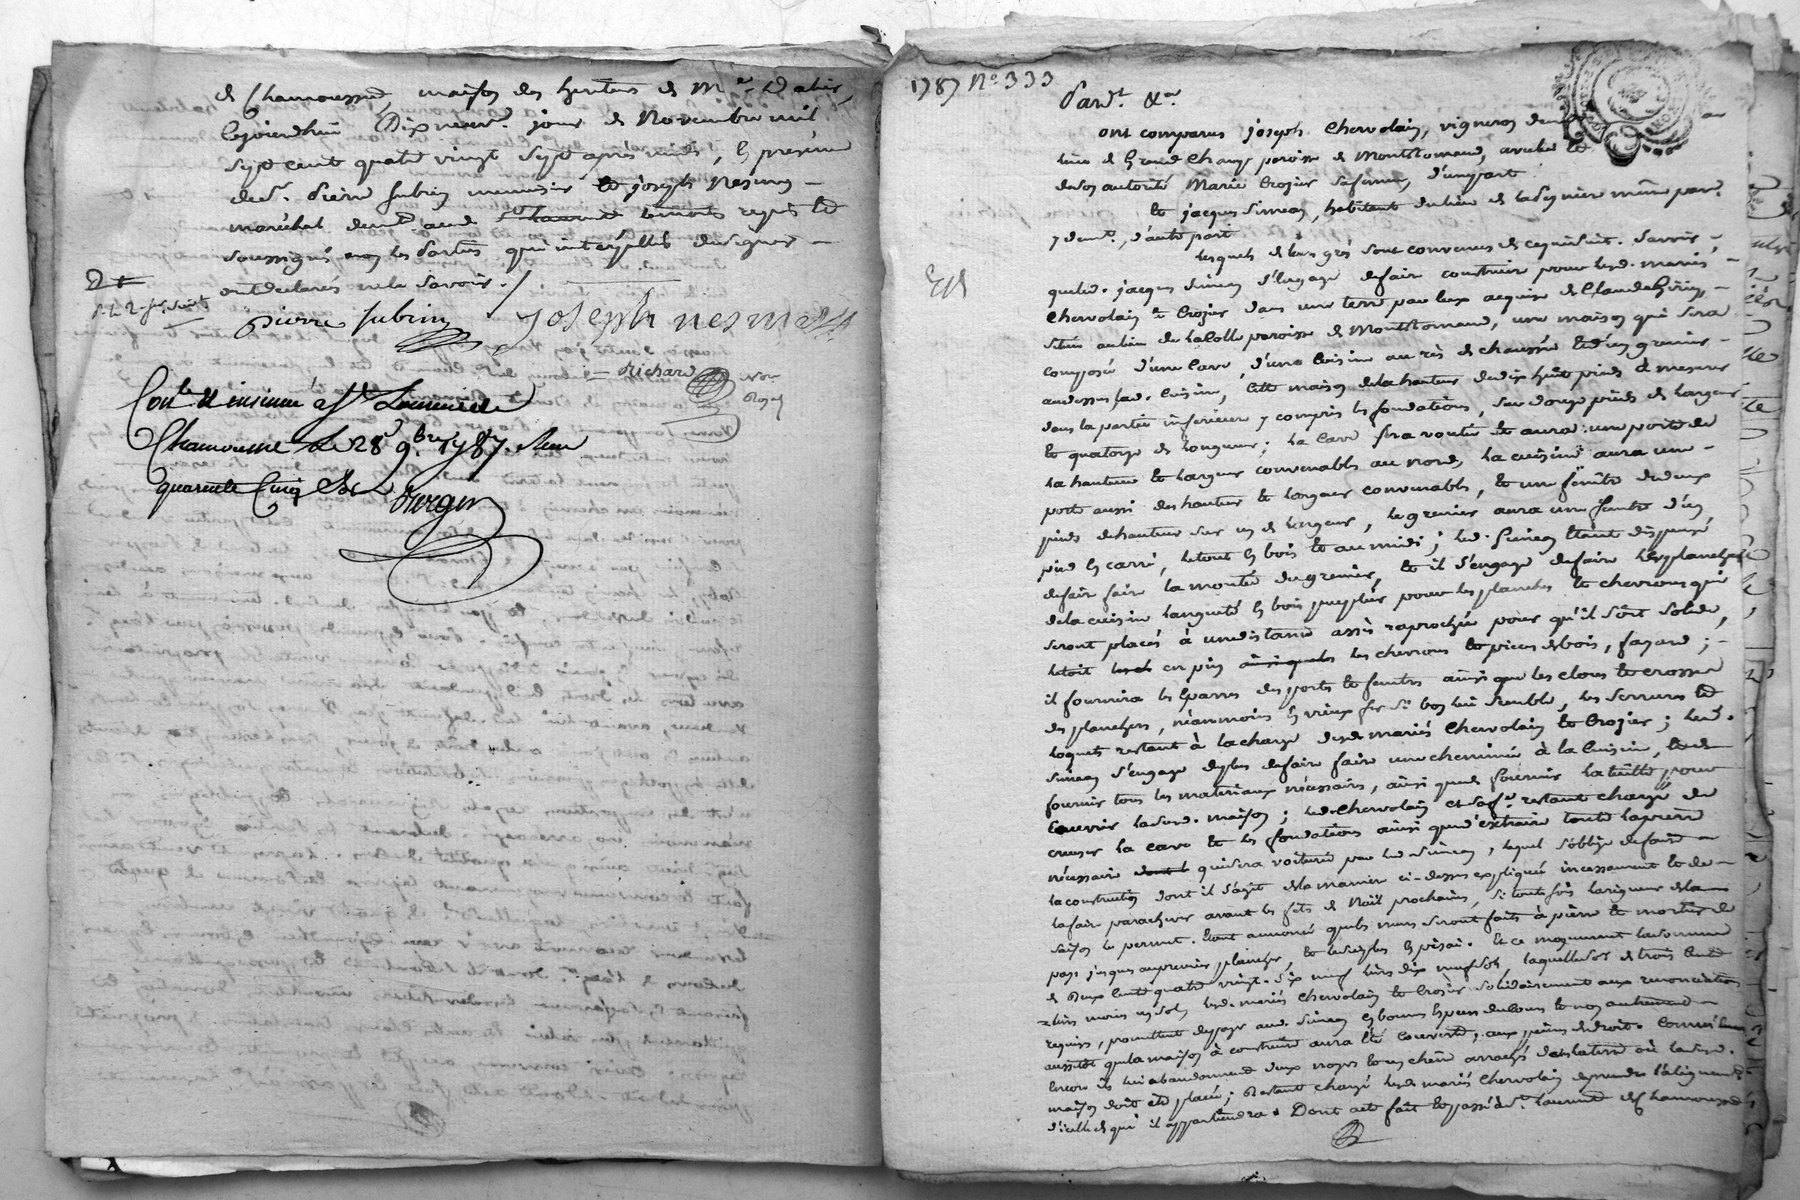 de Chamousset, maison des heritiers de Me Dalin,
cejourd'hui Dix neuve. jour de Novembre mil
sept cent quatre vingt sept après midi, en présence
de sr. Pierre Jubin menuisier et joseph Nesmes
maréchal demt. aud. St Laurent témoins requis et
soussignés non les Parties qui interpellés de signer
ont declarés ne le savoir. /
Pierre Jubin Joseph nesmes
Richard Nore Royal
Conlé et insinué à St Laurent de
Chamousset le 28 9.bre 1787. Reçu
quarante Cinq Sols
1787 N° 333
Pardt. &a.
ont comparus joseph Chervolain, vigneron demt. au
lieu de Grand Champ paroisse de Montromand, avec lui et
de son autorité Marie Crozier sa femme, d'une part
et jacques Simean, habitant du lieu de la même par.
y demt., d'autre part
lesquels de leurs grés sont convenus de ce qui suit. Savoir,
que led. jacques Simean s'engage de faire construire pour lesd. mariés
Chervolain et Crozier dans une terre par eux acquise de Claude
située au lieu de la Colle paroisse de Montromand, une maison qui sera
composée d'une cave, d'une cuisine au rès de chaussée et d'un grenier
au dessus de lad. cuisine, cette maison de la hauteur de dix huit pieds à mesurer
dans la partie inférieure y compris les fondations, sur douze pieds de largeur
et quatorze de longueur; la cave sera voutée et aura une porte de
la hauteur et largeur convenables au nord, la cuisine aura une
porte aussi de hauteur et largeur convenables, et une fenêtre de deux
pieds de hauteur sur un de largeur, le grenier aura une fenêtre d'un
pied en carré, le tout en bois et au midi; led. Simean étant dispensé
de faire faire la montée du grenier, et il s'engage de faire les planchers
de la cuisine langueté en bois peuplier pour les planches et chevrons qui
seront placés à une distance assès raprochée pour qu'il soit solide,
le toit en pin les chevrons et pieces de bois, fayard;
il fournira les Eparres des portes et fenêtres ainsi que les clous et crosses
des planchers, néanmoins en vieux fer si bon lui semble, les serrures et
loquets restant à la charge desd. mariés Chervolain et Crozier; led.
Simean s'engage de plus de faire faire une cheminée à la cuisine, et de
fournir tous les materiaux nécessaires, ainsi que de fournir la tuille pour
couvrir lad. maison; led. Chervolain et sa fe. restant chargé de
creuser la cave et les fondations ainsi que d'extraire toute la pierre
nécessaire qui sera voiturée par led. Simean, lequel s'oblige de faire
la construction dont il s'agit de la maniere ci-dessus expliquée incessament et de
la faire parachever avant les fêtes de Noël prochaines, si toutefois la rigueur de la
saison le permet. étant annoncé que les murs seront faits à pierre et mortier de
pays jusques au premier plancher, et le surplus en pisai. Et ce moyennant la somme
de Deux cents quatre vingt dix neuf livres dix neuf sols laquelle somme de trois cents
livres moins un sol, lesd. mariés Chervolain et Crozier solidairement aux renonciations
requises, promettent de payer aud. Simean en bonnes espèces de cours et non autrement
aussitôt que la maison à construire aura été couverte, aux peines de droit. Comme
encore ils lui abandonnent deux noyers et un chêne arrachés dans la terre où lad.
maison doit être placée; restant chargé lesd. mariés Chervolain de prendre l'alignement
d'icelle de qui il appartiendra. Dont acte fait et passé à St. Laurent de Chamousset